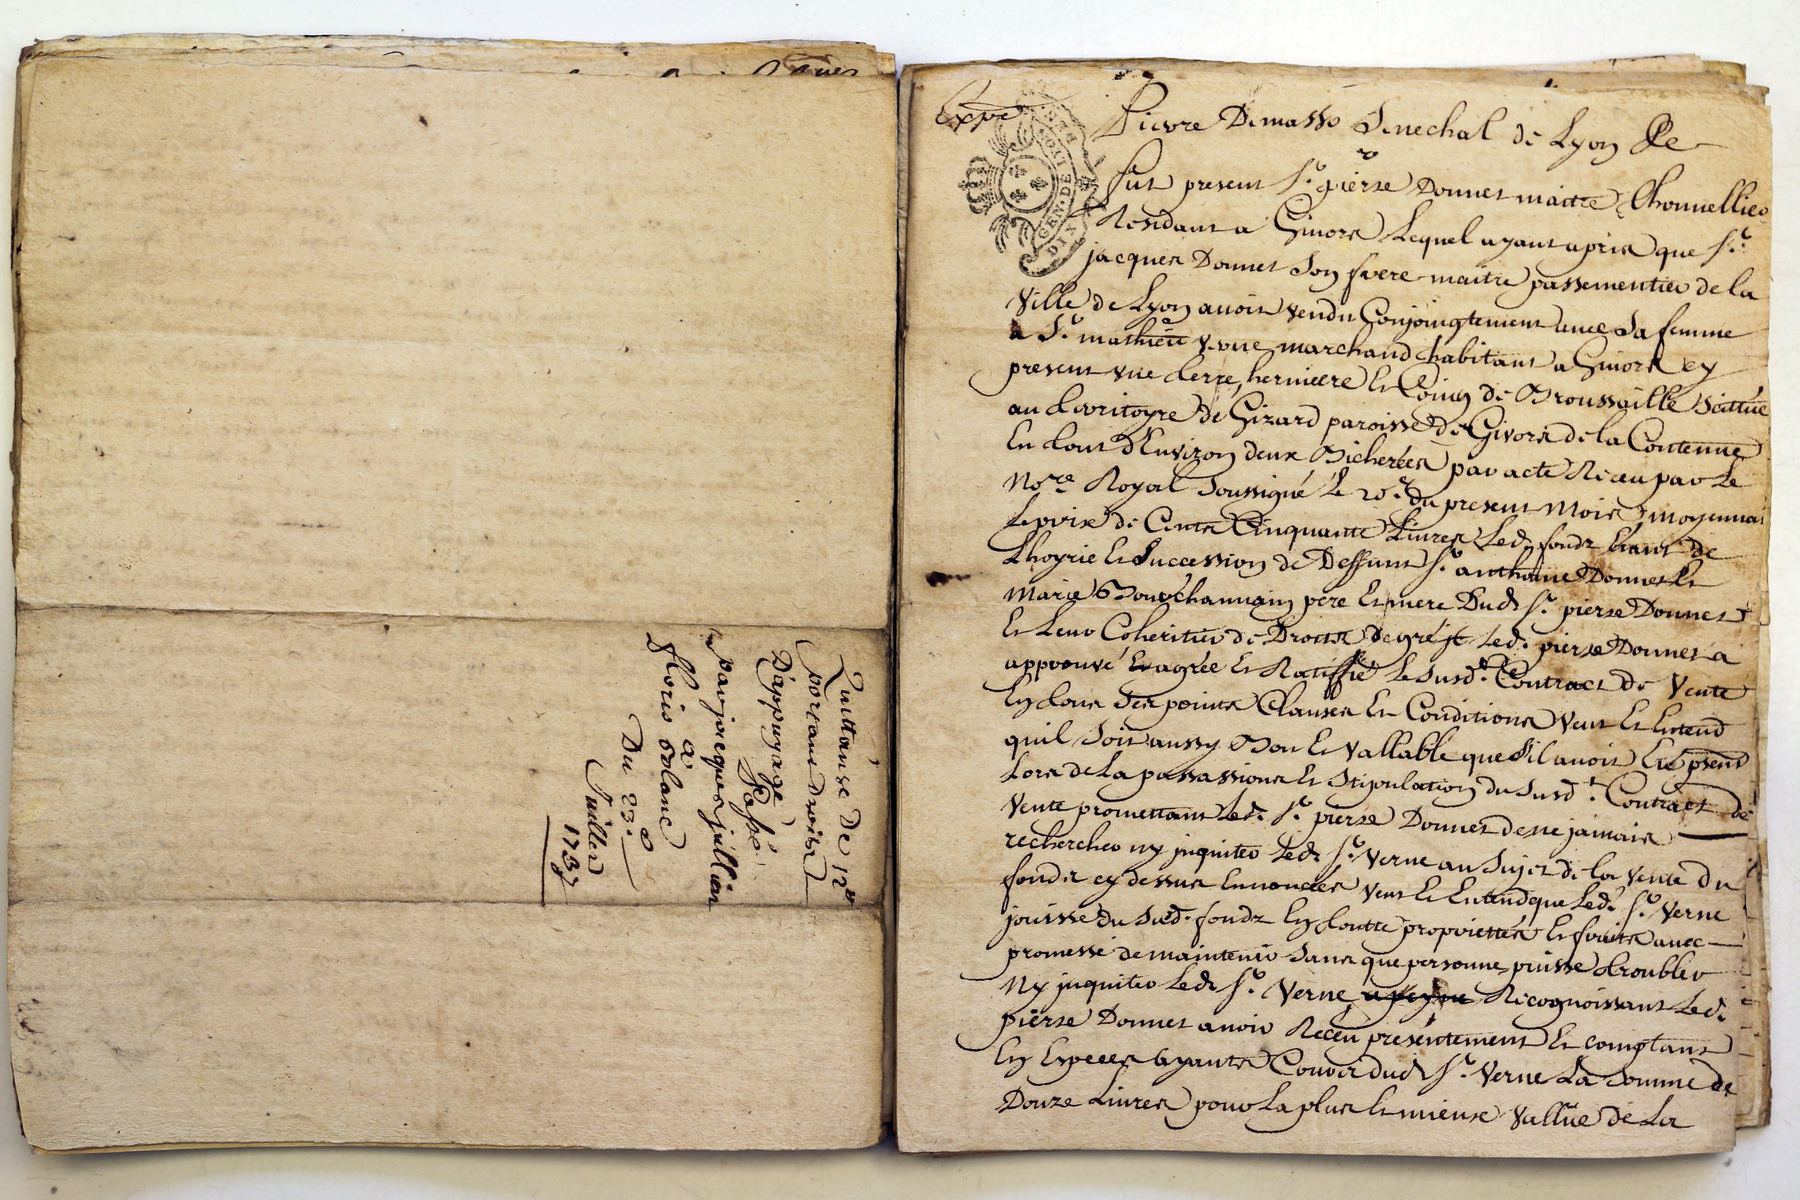 Quittance De 12ᵗᵗ
portant droits
D'appuyage
Passé
par jacques jullion
à
floris Volane
Du 23ᵉ
Juillet
1737
Expé
GEN. DE LYON
DIX
Pierre Demasso Senechal de Lyon &c
fut present Sʳ. pierre Donnet maitre Thonnellier
Residant a Givors Lequel ayant apris que Sʳ.
jacques Donnet Son frere maitre passementier de la
Ville de Lyon avoit vendu Conjoingtement avec Sa femme
a Sʳ. mathieu Verne marchand habitant a Givors cy
present une terre, hermiere Et Coing de Broussaille Scittué
au territoyre de Gizard paroisse de Givors de la Contenue
En tout d'Environ deux Bicherées par acte Receu par Le
Noʳᵉ Royal Soussigné Le 20ᵉ. du present Mois moyennant
Le prix de Cents Cinquante Livres Led. fondz Etant de
Lhoyrie Et Succession de Deffunt Sʳ. anthoine Donnet Et
Marie Bouchannain pere Et mere Dud. Sʳ. pierre Donnet
Et Leur Coheritier de Droits de gré Led. pierre Donnet a
approuvé Et agrée Et Ratiffie Le Susd. Contract de Vente
En tous Ses points Clauses Et Conditions Veut Et Entend
quil Soit aussy Bon Et Vallable que S'il avoit Eté pnt
Lors de La passassions Et Stipulation du Susd. Contract de
Vente promettant Led. Sʳ. pierre Donnet de ne jamais
rechercher ny inquiter Led. Sʳ. Verne au Sujet de la Vente du
fondz cy dessus Ennoncées Veut Et Entend que Led. Sʳ. Verne
jouisse du Sud. fondz En toutte propriettés Et fruits avec
promesse de maintenir Sans que personne puisse troubler
Ny inquiter Led. Sʳ. Verne Recognoissant Led.
pierre Donnet avoir Receu présentement Et comptant
En Especes Ayants Cours dud. Sʳ. Verne La Somme de
Douze Livres pour La plus Et mieux Vallüe de La